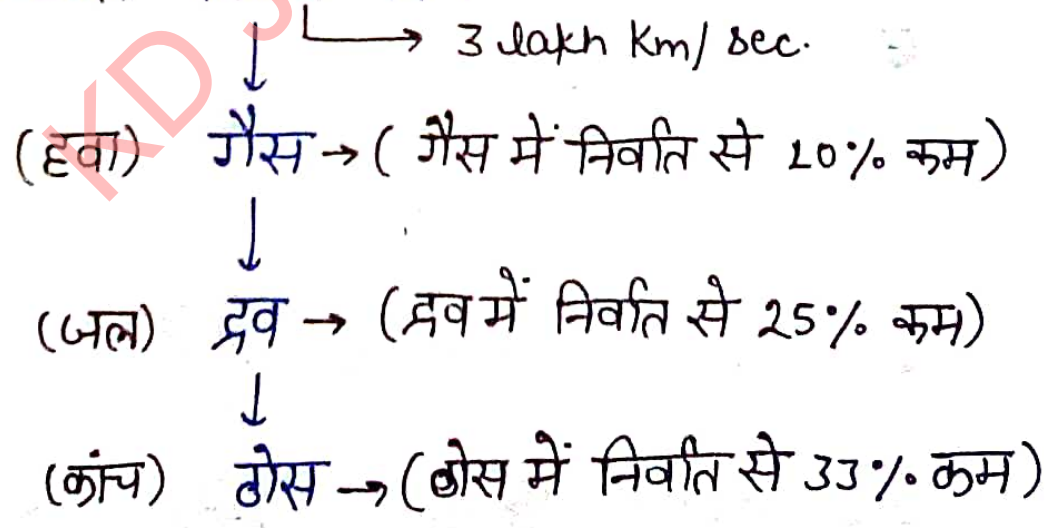 → 3 lakh Km/sec.
(हवा) गैस → ( गैस में निर्वात से 10% कम)
(जल) द्रव → (द्रव में निर्वात से 25% कम)
(कांच) ठोस → (ठोस में निर्वात से 33% कम)
KD